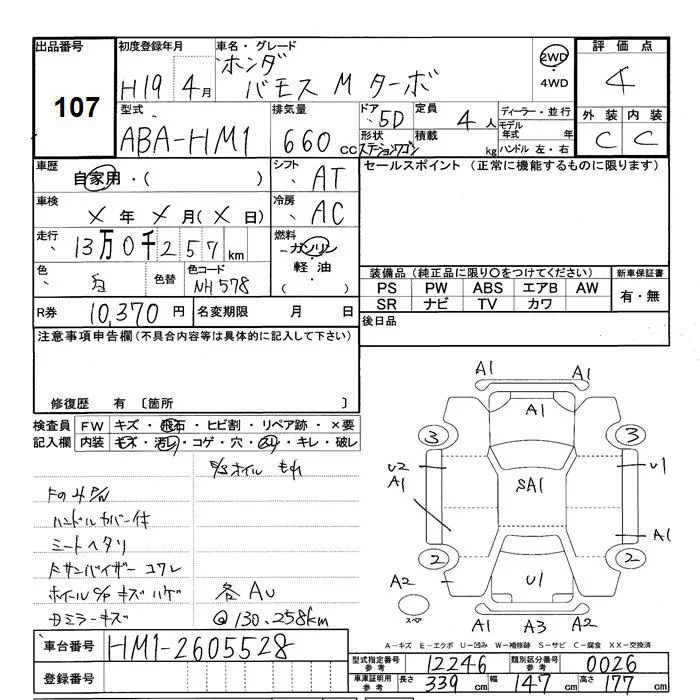 出品番号 初度登録年月 車名・グレード 評価点
107
H19年4月 ホンダ バモス M ターボ 2WD 4WD 4
型式 排気量 ドア 定員 ディーラー・並行 外装 内装
ABA-HM1 660cc 5D 4人 モデル年式 年 C C
形状 ステーションワゴン 積載 kg ハンドル 左・右
車歴 自家用・( ) シフト AT セールスポイント (正常に機能するものに限ります)
車検 X年X月(X日) 冷房 AC
走行 13万0千257km 燃料 ガソリン
軽油
( )
色 白 色替 色コード NH578
装備品(純正品に限り○をつけてください) 新車保証書
PS PW ABS エアB AW 有・無
SR ナビ TV カワ
R券 10,370円 名変期限 月 日 後日品
注意事項申告欄(不具合内容等は具体的に記入して下さい)
修復歴 有 〔箇所 〕
検査員 FW キズ・飛石・ヒビ割・リペア跡・×要
記入欄 内装 キズ・汚レ・コゲ・穴・スリ・キレ・破レ
ハンドルカバー付
シートヘタリ
サンバイザー コワレ
ホイール キズ ハゲ
ミラーキズ
各AU
@130.258km
A1 A1
A1
3 3
U2 U1
A1
SA1
A1
2 2
A2 U1
スペア
A1 A3 A2
A-キズ E-エクボ U-凹み W-補修跡 S-サビ C-腐食 XX-交換済
車台番号 HM1-2605528
登録番号
型式指定番号 参考 12246 類別区分番号 参考 0026
車庫証明用 参考 長さ 339cm 幅 147cm 高さ 177cm